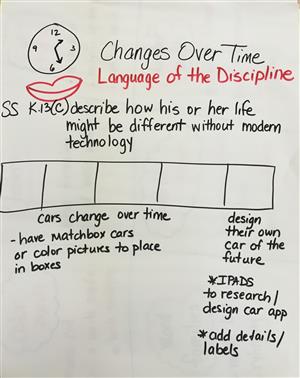 12
9
3
6
Changes Over Time
Language of the Discipline
SS K.13(C) describe how his or her life
might be different without modern
technology
cars change over time
-have Matchbox cars
or color pictures to place
in boxes
design
their own
car of the
future
*IPADS
to research/
design car app
*add details/
labels